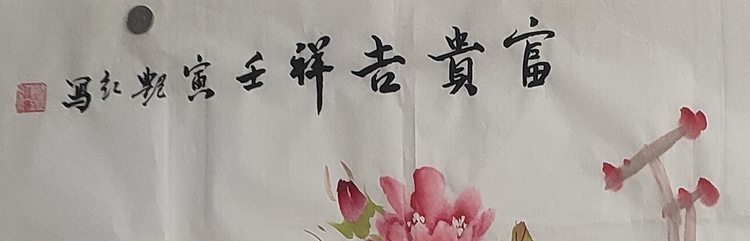 富貴吉祥壬寅艷紅寫